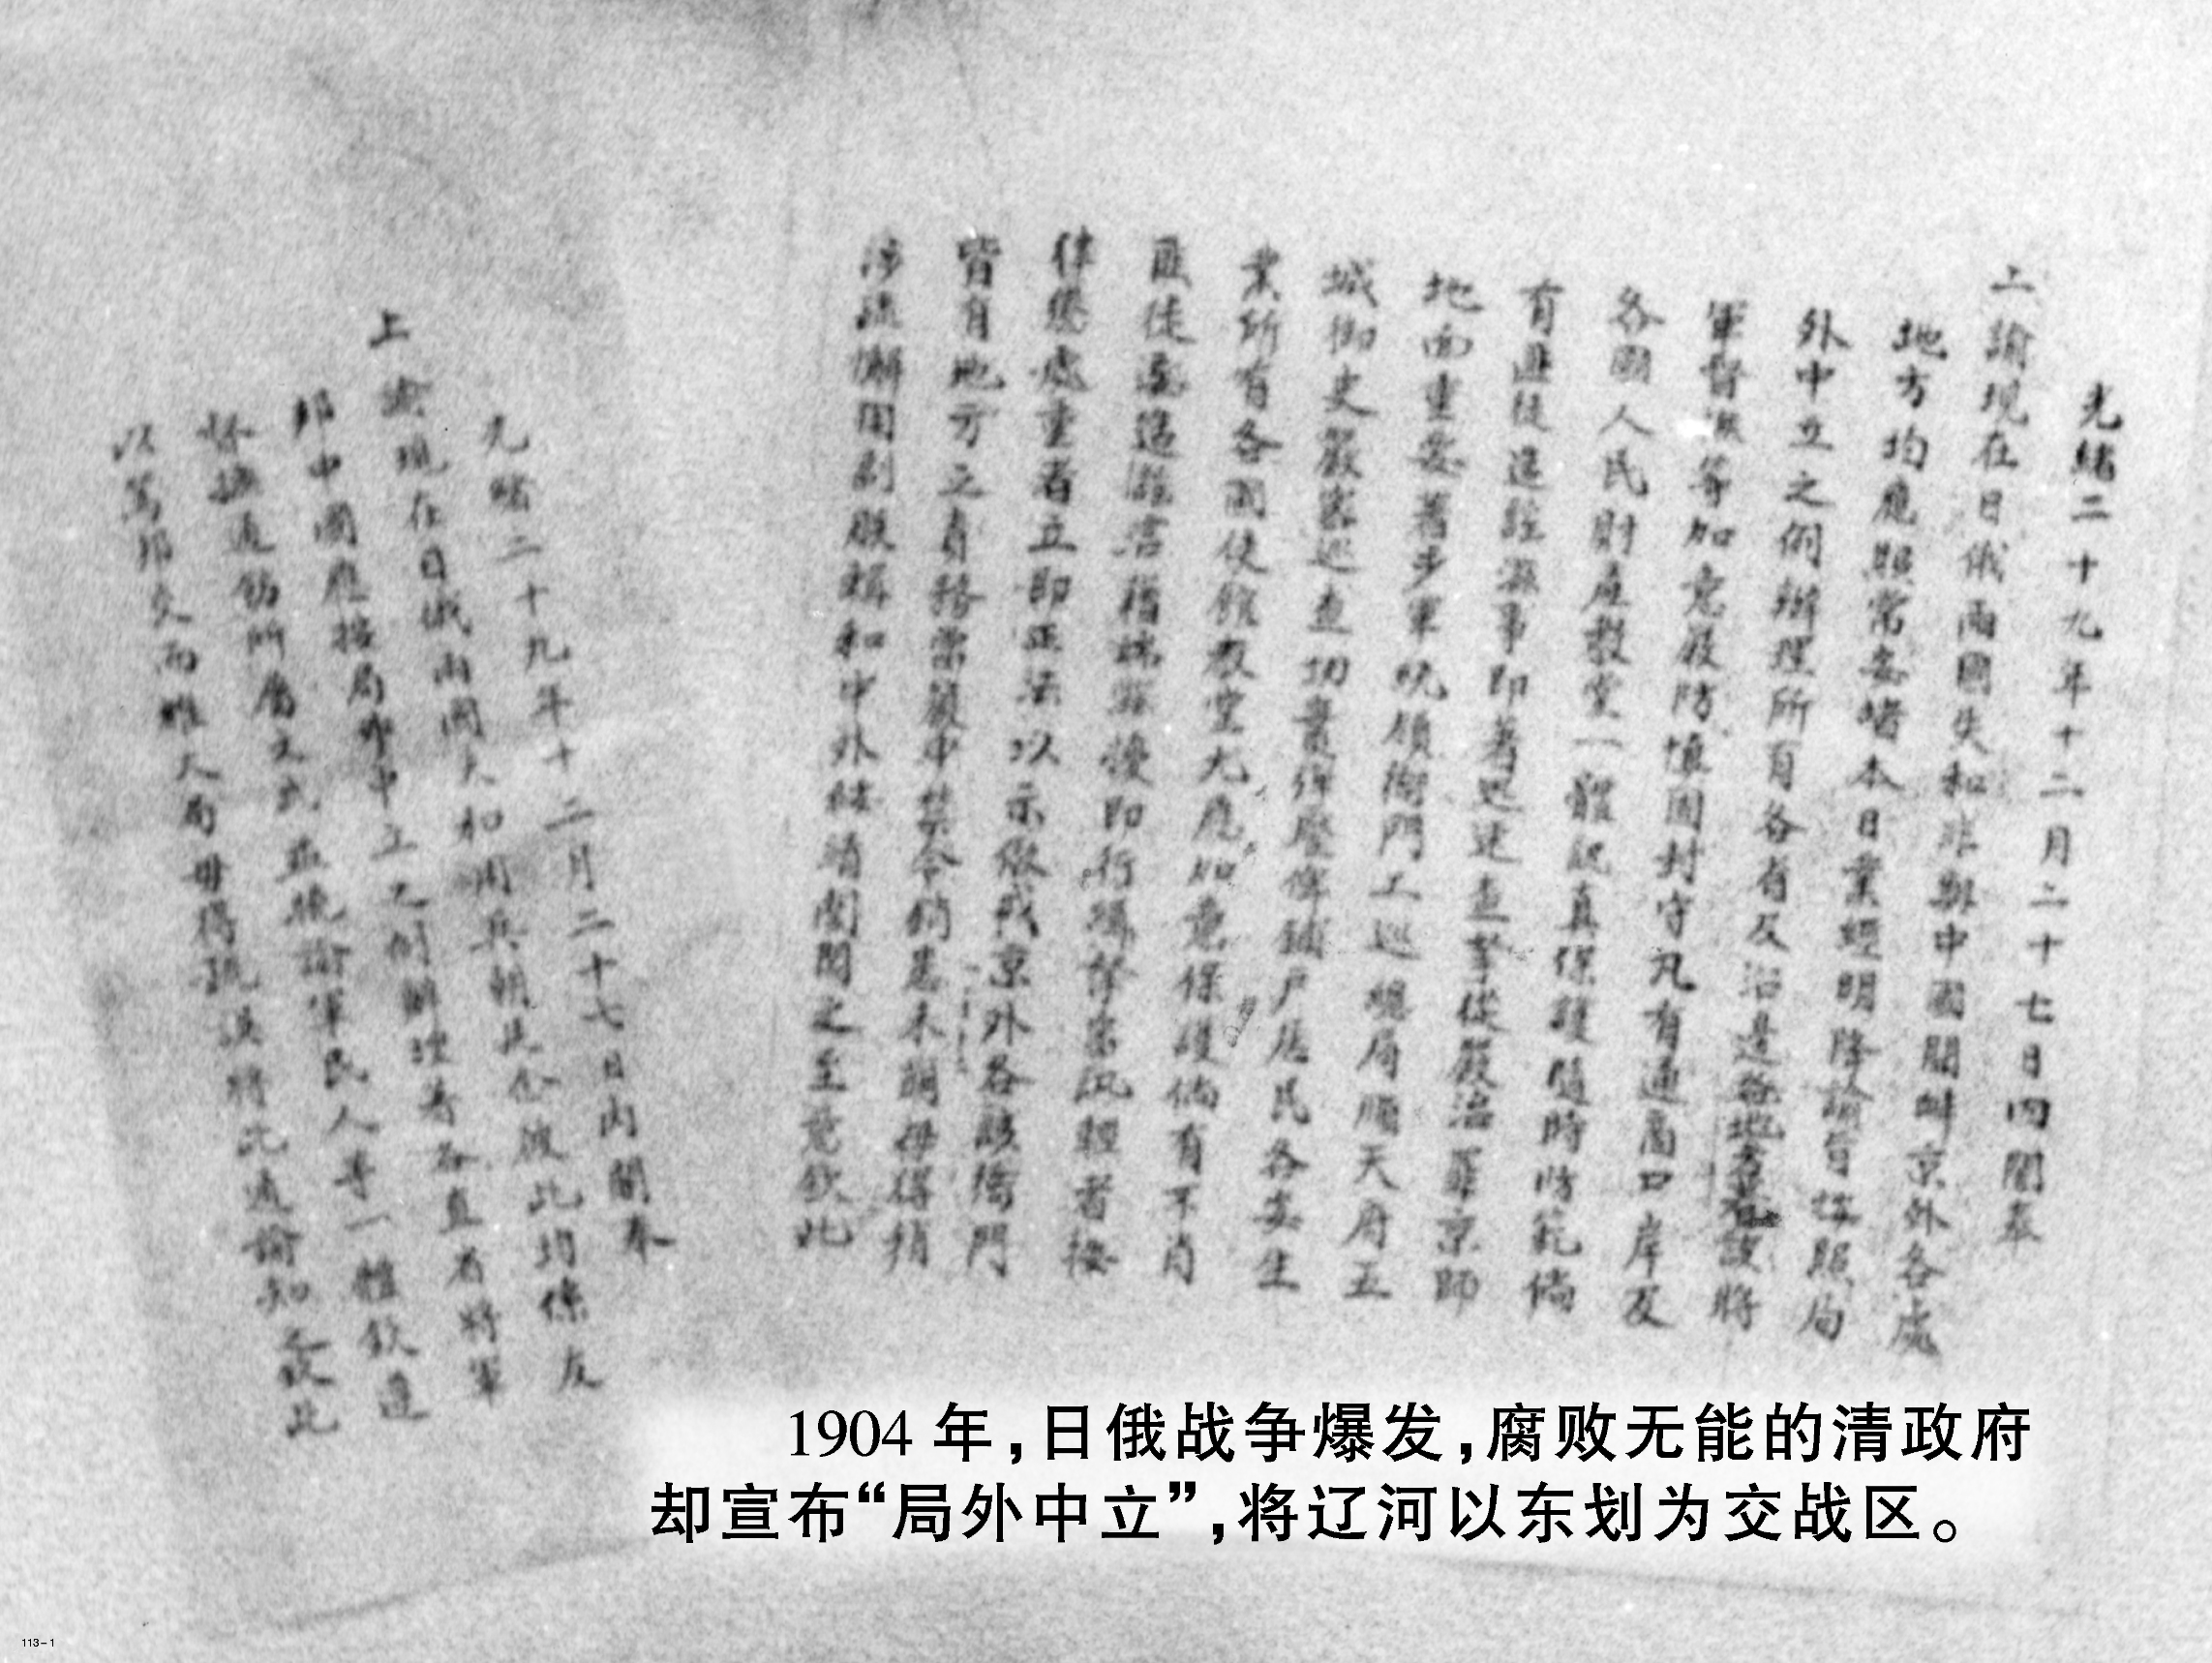 光緒二十九年十二月二十七日內閣奉
上諭現在日俄兩國失和非與中國開衅京外各處
地方均應照常安堵本日業經明降諭旨按照局
外中立之例辦理所有各省及沿邊各地方著該將
軍督撫等加意嚴防慎固封守凡有通商口岸及
各國人民財產教堂一體認真保護隨時防範倘
有匪徒造謠滋事即著迅速查拏從嚴治罪京師
地面重要著步軍統領衙門工巡總局順天府五
城御史嚴密巡查切實彈壓俾鋪戶居民各安生
業所有各國使館教堂尤應加意保護倘有不肖
匪徒造謠言藉端滋擾即行嚴拏訊輕者按
律懲處重者立即正法以示儆戒京外各該衙門
皆有地方之責務當嚴申禁令消患未萌毋得稍
涉疏懈用副朕輯和中外綏靖閭閻之至意欽此
光緒二十九年十二月二十七日內閣奉
上諭現在日俄兩國失和用兵朝廷念彼此均係友
邦中國應按局外中立之例辦理著各直省將軍
督撫通飭所屬文武並曉諭軍民人等一體欽遵
以篤邦交而維大局毋得疏誤將此通諭知之欽此
1904年，日俄战争爆发，腐败无能的清政府
却宣布“局外中立”，将辽河以东划为交战区。
113-1